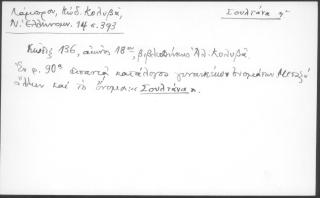 Λάμπρου, Κώδ. Κολυβᾶ,
Ν. Ἑλληνομ. 14 σ. 393
Σουλτάνα ἡ
Κῶδιξ 136, αἰῶνος 18ου, βιβλιοθήκης Ἀλ. Κολυβᾶ.
Ἐν φ. 90α κατάλογος γυναικείων ὀνομάτων. Μεταξὺ
ἄλλων καὶ τὸ ὄνομα: Σουλτάνα